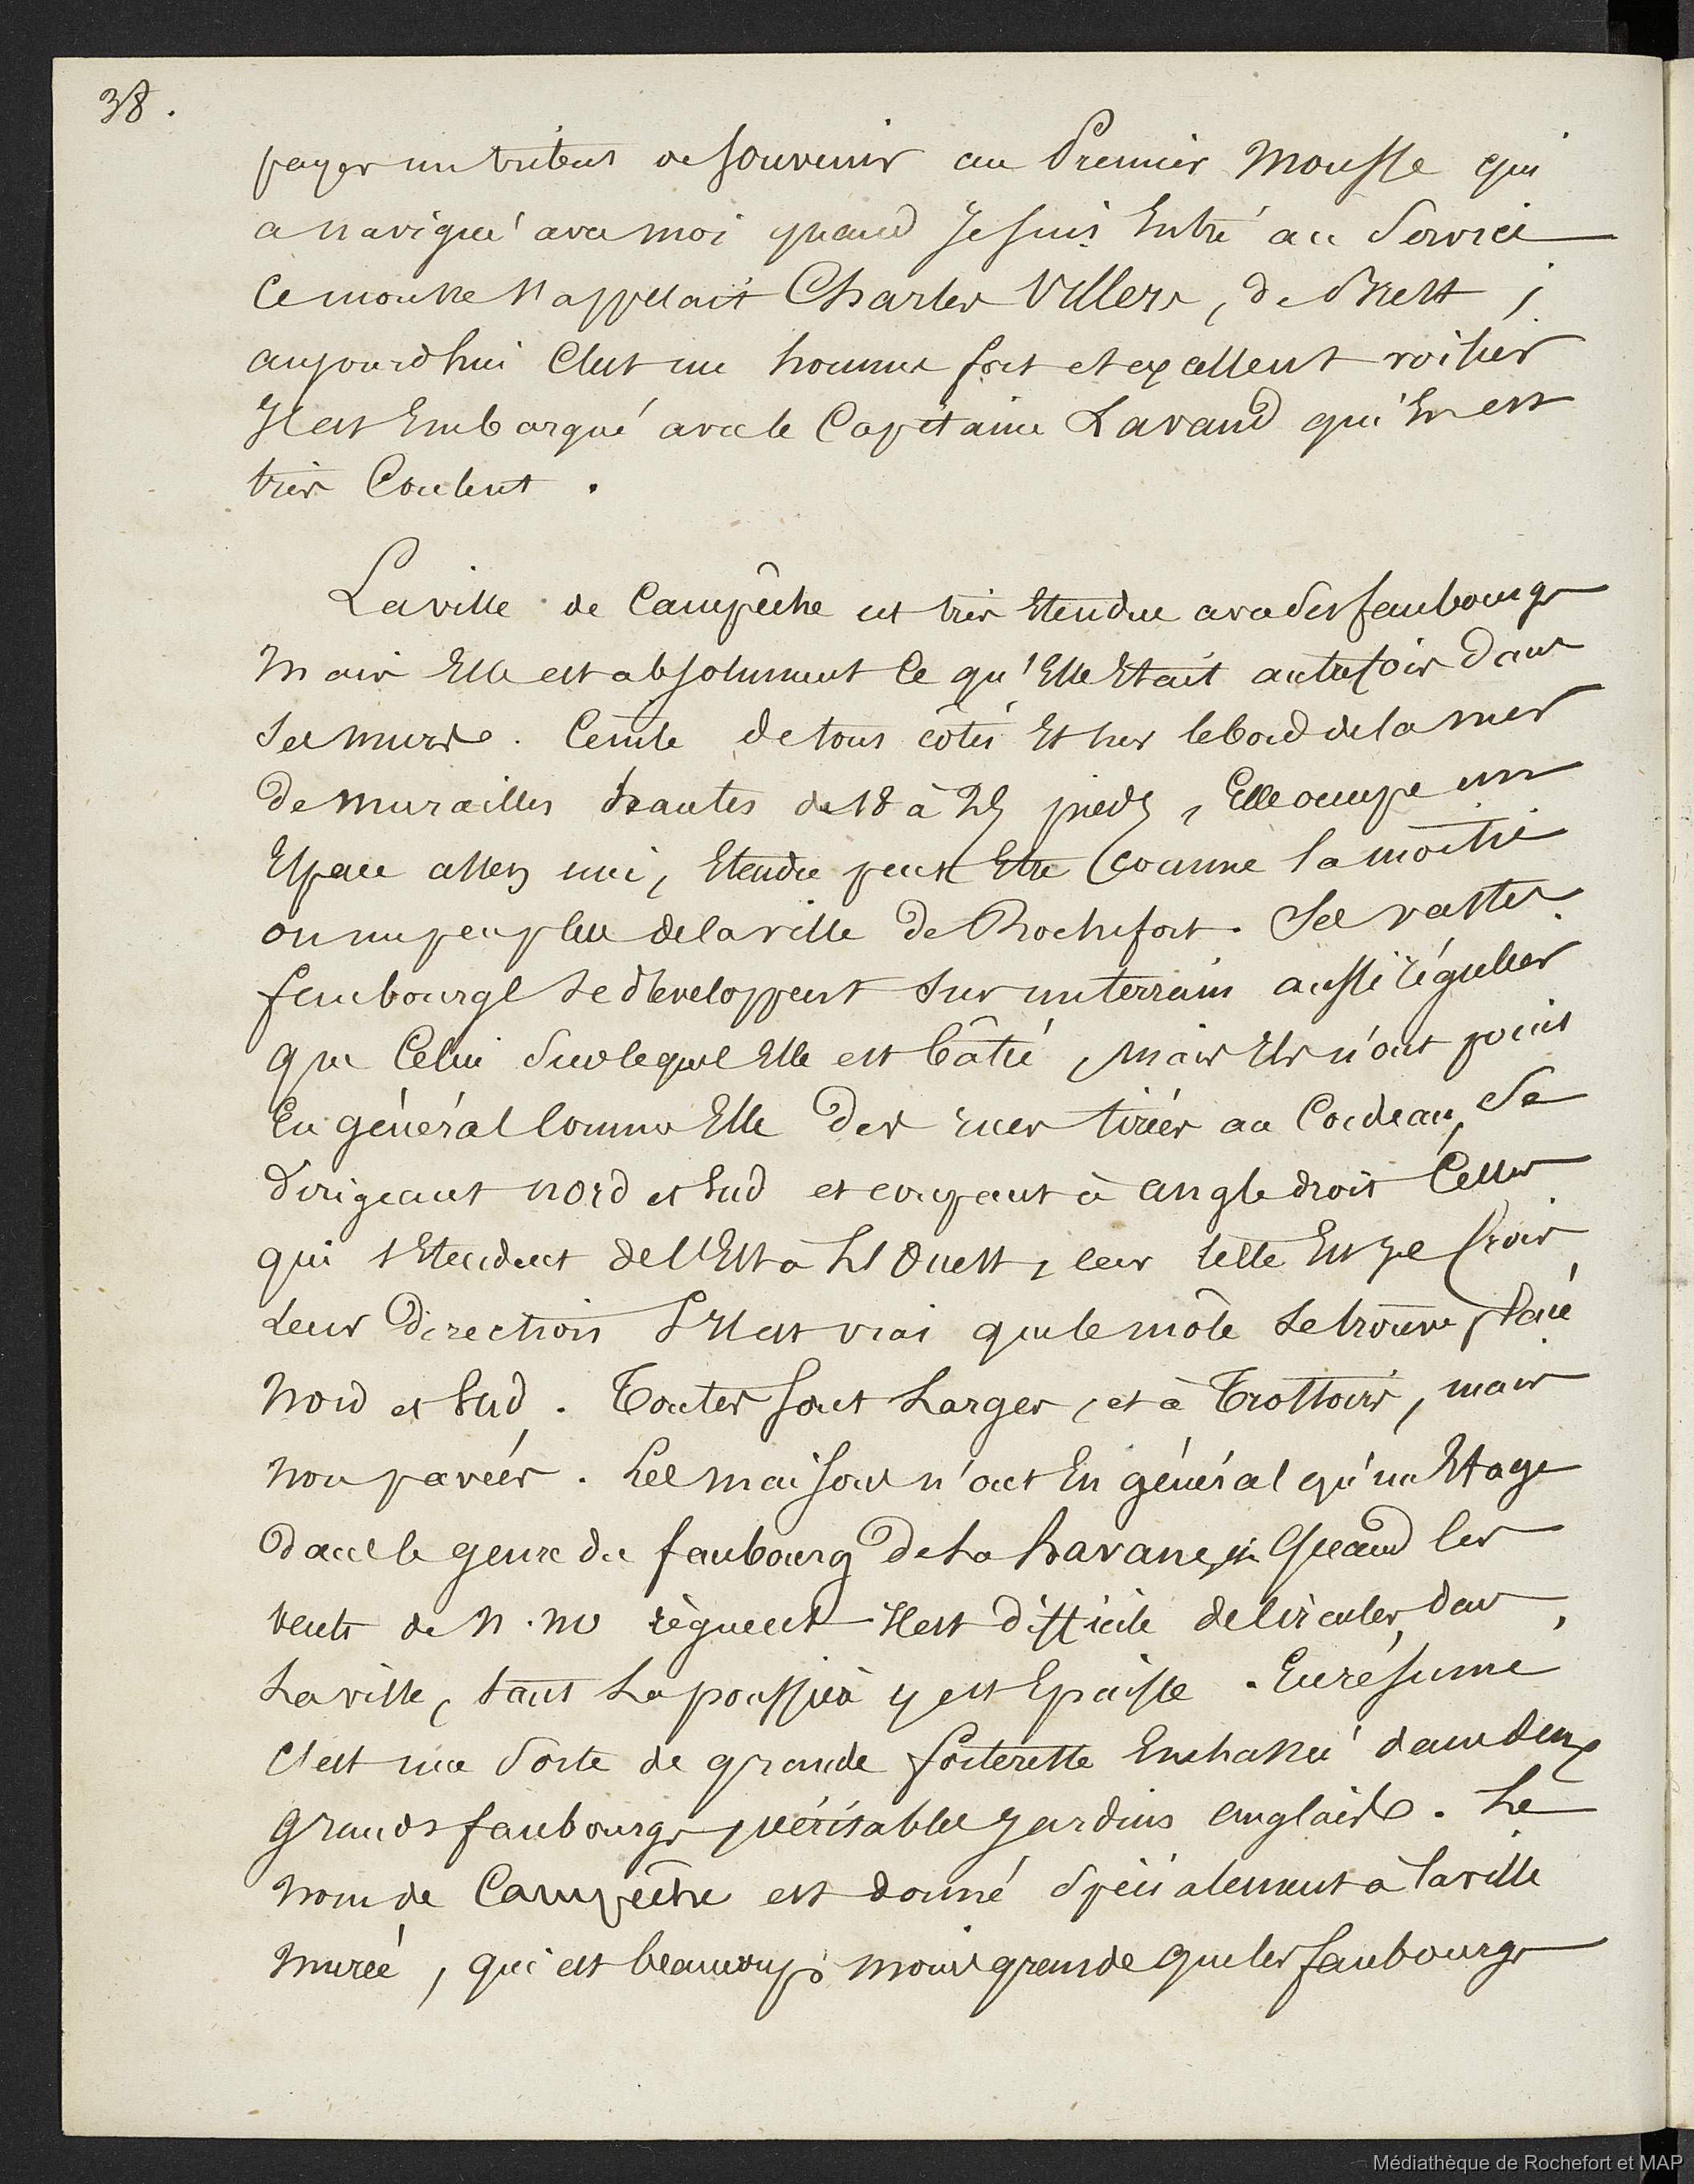 38.
payer un tribut de souvenir au Premier Mousse qui
a navigué avec moi quand Je suis Entré au Service
Ce mousse s'appelait Charles Villers, de Brest ;
aujourdhui C'est un homme fort et excellent voilier
Il est Embarqué avec le Capitaine Lavaud qui En est
très Content .
La ville de Campêche est très Etendue avec Ses faubourgs
Mais Elle est absolument Ce qu'Elle Etait autrefois Dans
Ses Murs. Ceinte de tous côtés Et sur le bord de la mer
De Murailles hautes de 18 à 25 pieds, Elle occupe un
Espace assez uni, Etendu peut Etre Comme la moitié
ou un peu plus de la ville De Rochefort. Ses vastes
faubourgs se développent Sur un terrain aussi régulier
Que Celui Sur lequel Elle est bâtie, Mais Ils n'ont point
En général Comme Elle Des rues tirées au Cordeau, Se
Dirigeant nord et Sud et coupant à angle droit Celles
qui s'Etendent de l'Est à L'Ouest, leur telle Est je Crois
Leur Direction S'Il est vrai que le môle se trouve placé
Nord et Sud. Toutes sont Larges, et à Trottoirs, mais
Non pavées. Les maisons n'ont En général qu'un Etage
Dans le genre du faubourg De La havane, Quand les
vents de N. NO règnent Il est Difficile de Circuler, dans
La ville, tant La poussière y est Epaisse. En résumé
C'est une Sorte de grande forteresse Enchassée dans deux
grands faubourgs, véritables Jardins anglais. Le
Nom de Campêche est donné Spécialement à la ville
Murée, qui est beaucoup moins grande que les faubourgs
Médiathèque de Rochefort et MAP